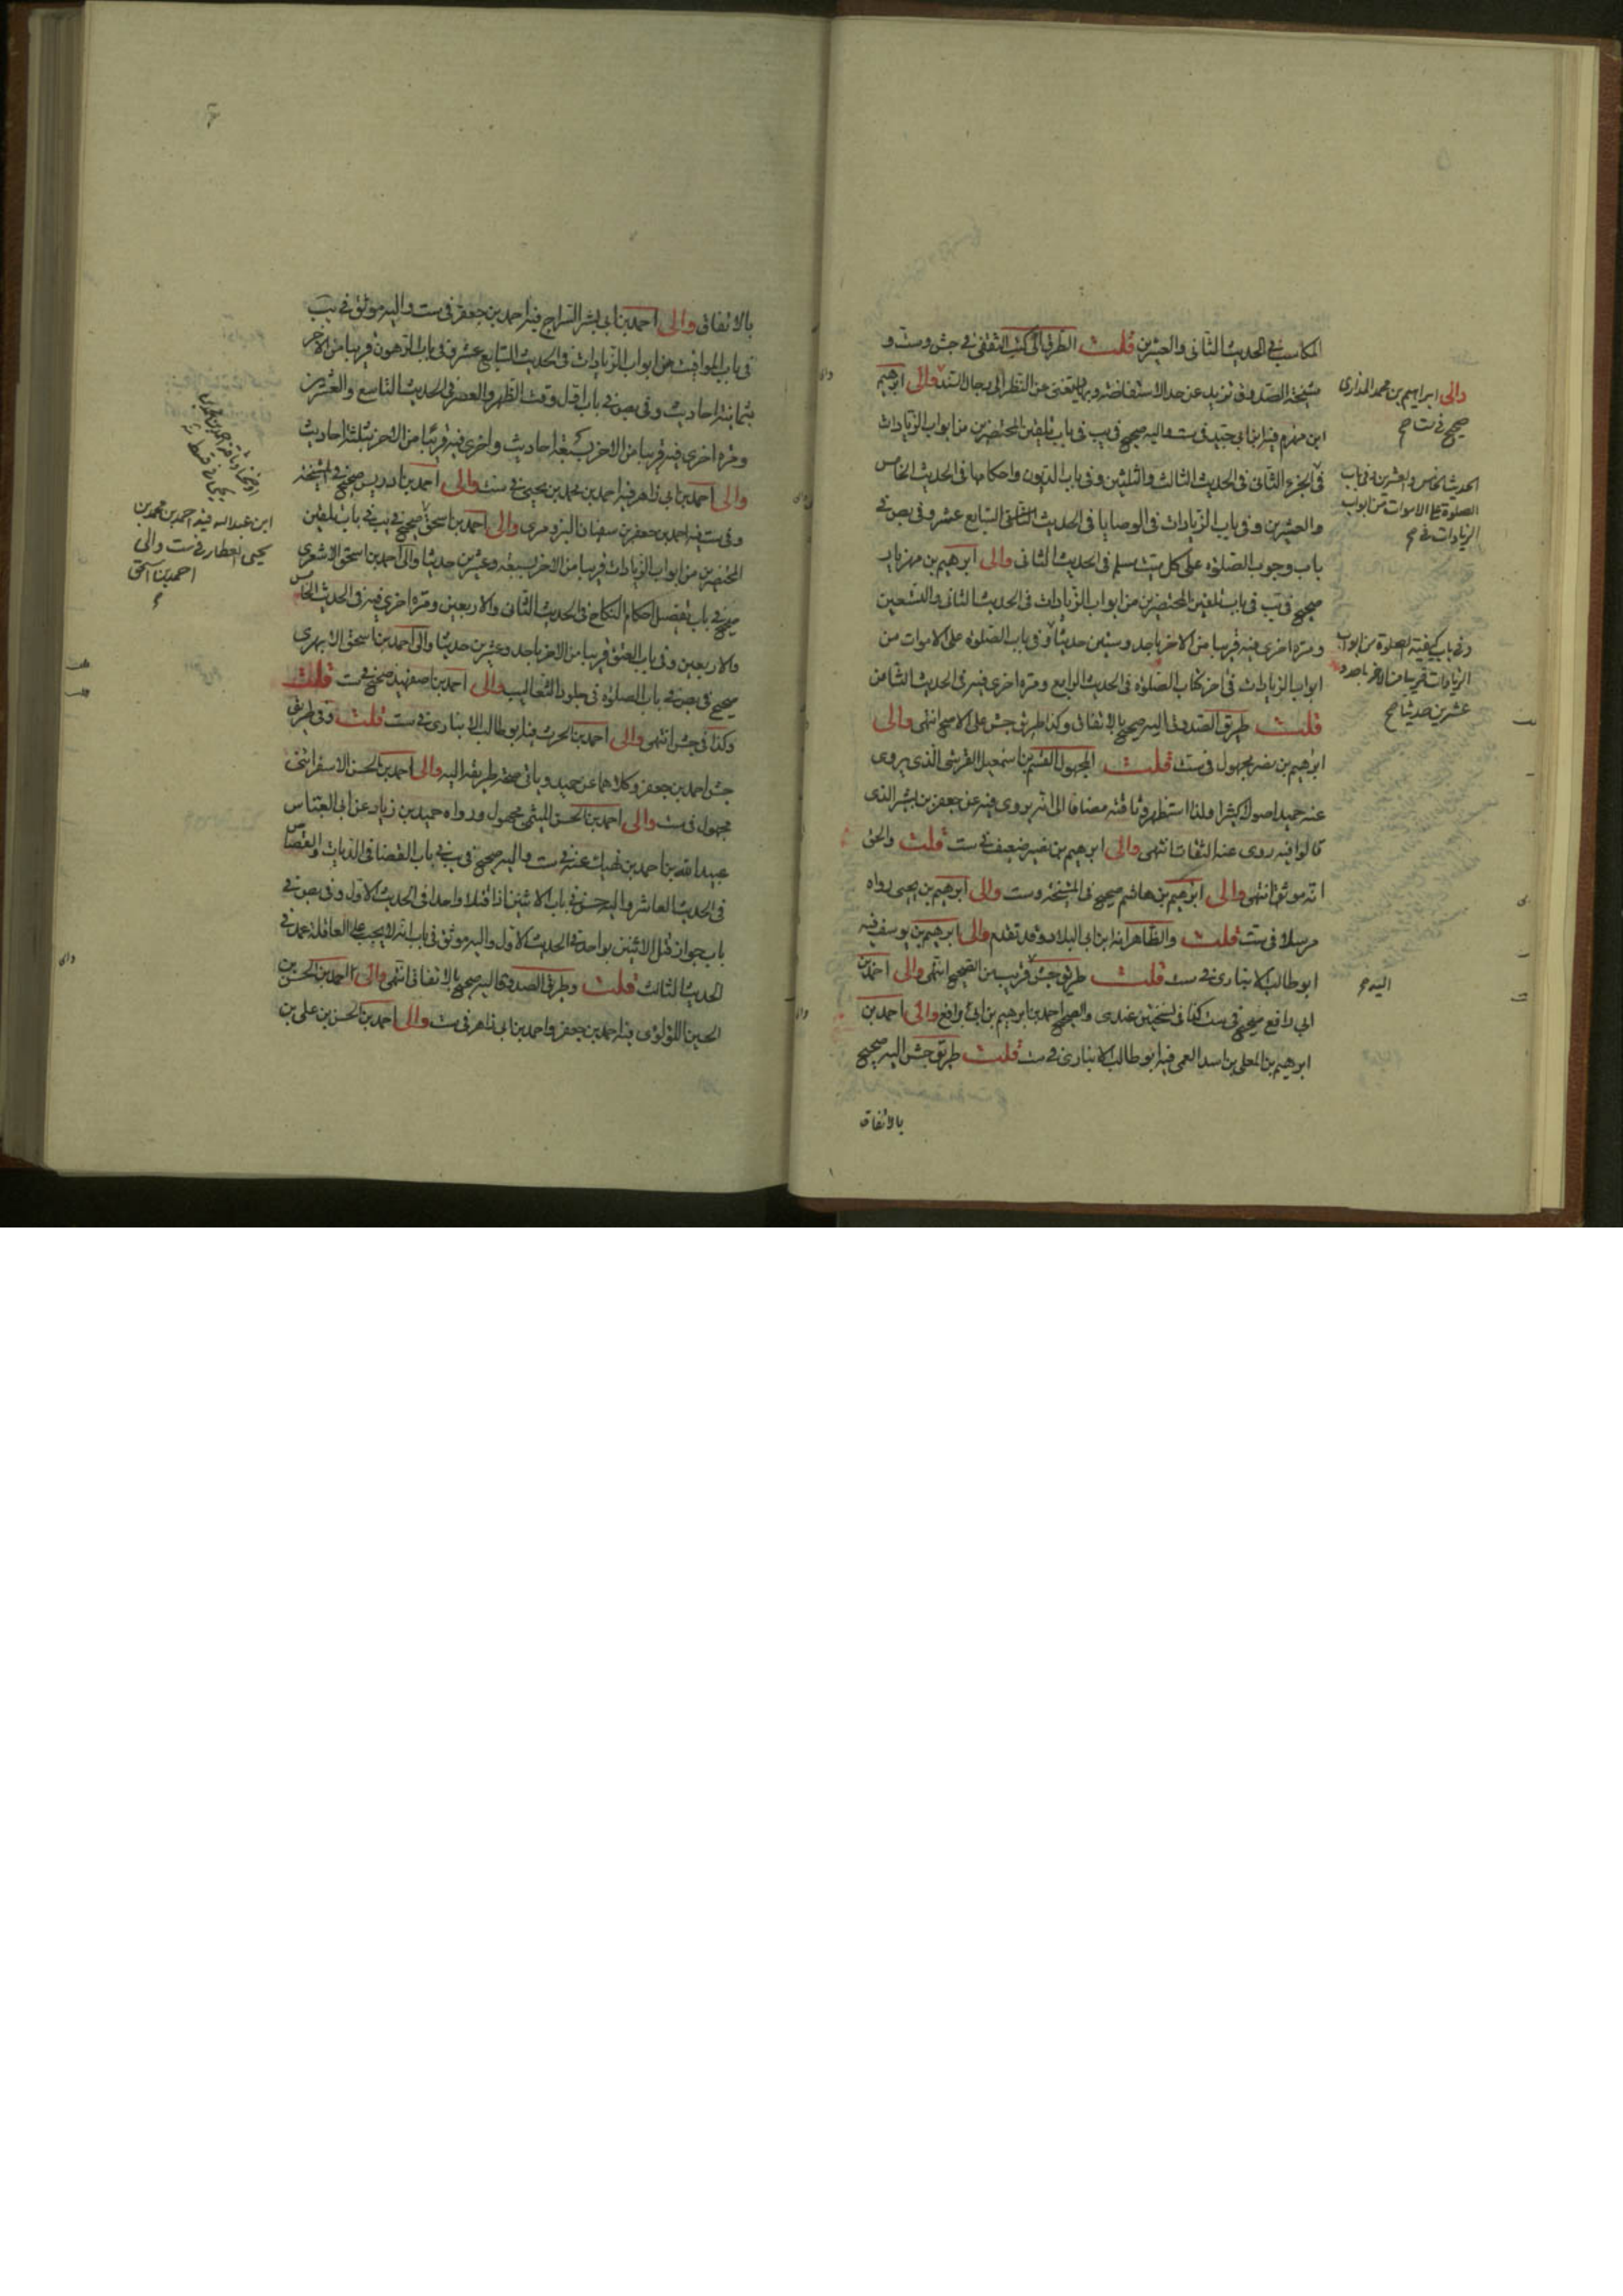 المكاسب فى الحديث الثانى والعشرين قلت الطرق الى كتب الثقفى فى جش وست و
مشيخة الصدوق تزيد عن حد الاستفاضة وبها يستغنى عن النظر الى رجال السند والى ابرهيم
ابن مهزم فيه ابن ابى جيد فى ست واليه صحيح فى يب فى باب تلقين المحتضرين من ابواب الزيادات
فى الجزء الثانى فى الحديث الثالث والثلثين وفى باب الديون واحكامها فى الحديث الخامس
والعشرين وفى باب الزيادات فى الوصايا فى الحديث السابع عشر وفى بص فى
باب وجوب الصلوة على كل ميت مسلم فى الحديث الثانى والى ابرهيم بن مهزيار
صحيح فى يب فى باب تلقين المحتضرين من ابواب الزيادات فى الحديث الثانى والتسعين
ومرة اخرى فيه قريبا من الاخر باحد وستين حديثا وفى باب الصلوة على الاموات من
ابواب الزيادات فى اخر كتاب الصلوة فى الحديث الرابع ومرة اخرى فيه فى الحديث الثامن
قلت طريق الصدوق اليه صحيح بالاتفاق وكذا طريق جش على الاصح انتهى والى
ابرهيم بن نصر مجهول فى ست قلت المجهول القسم بن اسمعيل القرشى الذى يروى
عنه حميد اصولا كثيرا ولذا استظهر وثاقته مضافا الى انه يروى فيه عن جعفر بن بشير الذى
قالوا فيه روى عنه الثقات انتهى والى ابرهيم بن نصير ضعيف فى ست قلت والحق
انه موثق انتهى والى ابرهيم بن هاشم صحيح فى المشيخة وست والى ابرهيم بن يحيى رواه
مرسلا فى ست قلت والظاهر انه ابن ابى البلاد وقد تقدم والى ابرهيم بن يوسف فيه
ابو طالب الانبارى فى ست قلت طريق جش قريب من الصحيح انتهى والى احمد بن
ابى رافع صحيح فى ست كذا فى نسختين عندى والصحيح احمد بن ابرهيم بن ابى رافع والى احمد بن
ابرهيم بن المعلى بن اسد العمى فيه ابو طالب الانبارى فى ست قلت طريق جش اليه صحيح
بالاتفاق
والى ابراهيم بن محمد المذارى
صحيح فى ست صح
الحديث الخامس والعشرين وفى باب
الصلوة على الاموات من ابواب
الزيادات فى صح
وفى باب كيفية الصلوة من ابواب
الزيادات قريبا من الاخر باحد و
عشرين حديثا صح
اليه صح
بالاتفاق والى احمد بن ابى بشر السراج فيه احمد بن جعفر فى ست واليه موثق فى يب
فى باب المواقيت من ابواب الزيادات فى الحديث السابع عشر وفى باب الرهون قريبا من الاخر
بثمانية احاديث وفى بص فى باب اول وقت الظهر والعصر فى الحديث التاسع والعشرين
ومرة اخرى فيه قريبا من الاخر بسبعة احاديث واخرى فيه قريبا من الاخر بثلثة احاديث
والى احمد بن ابى زاهر فيه احمد بن محمد بن يحيى فى ست والى احمد بن ادريس صحيح فى المشيخة
وفى ست فيه احمد بن جعفر بن سفيان البزوفرى والى احمد بن اسحق صحيح فى يب فى باب تلقين
المحتضرين من ابواب الزيادات قريبا من الاخر بسبعة وعشرين حديثا والى احمد بن اسحق الاشعرى
صحيح فى باب تفصيل احكام النكاح فى الحديث الثانى والاربعين ومرة اخرى فيه فى الحديث الخامس
والاربعين وفى باب العتق قريبا من الاخر باحد وعشرين حديثا والى احمد بن اسحق الابهرى
صحيح فى بص فى باب الصلوة فى جلود الثعاليب والى احمد بن اصفهبد صحيح فى ست قلت
وكذا فى جش انتهى والى احمد بن الحرث فيه ابو طالب الانبارى فى ست قلت وفى طريق
جش احمد بن جعفر وكلاهما عن حميد وياتى صحة طريقه اليه والى احمد بن الحسن الاسفراينى
مجهول فى ست والى احمد بن الحسن الميثمى مجهول ورواه حميد بن زياد عن ابى العباس
عبيد الله بن احمد بن نهيك عنه فى ست واليه صحيح فى يب فى باب القضا فى الديات والقصاص
فى الحديث العاشر واليه حسن فى باب الاثنين اذا قتلا واحدا فى الحديث الاول وفى بص فى
باب جواز قتل الاثنين بواحد فى الحديث الاول واليه موثق فى باب انه لا يجب على العاقلة عمد فى
الحديث الثالث قلت وطريق الصدوق اليه صحيح بالاتفاق انتهى والى احمد بن الحسن بن
الحسين اللؤلؤى فيه احمد بن جعفر واحمد بن ابى زاهر فى ست والى احمد بن الحسن بن على بن
ابن عبد الله فيه احمد بن محمد بن
يحيى العطار فى ست والى
احمد بن اسحق